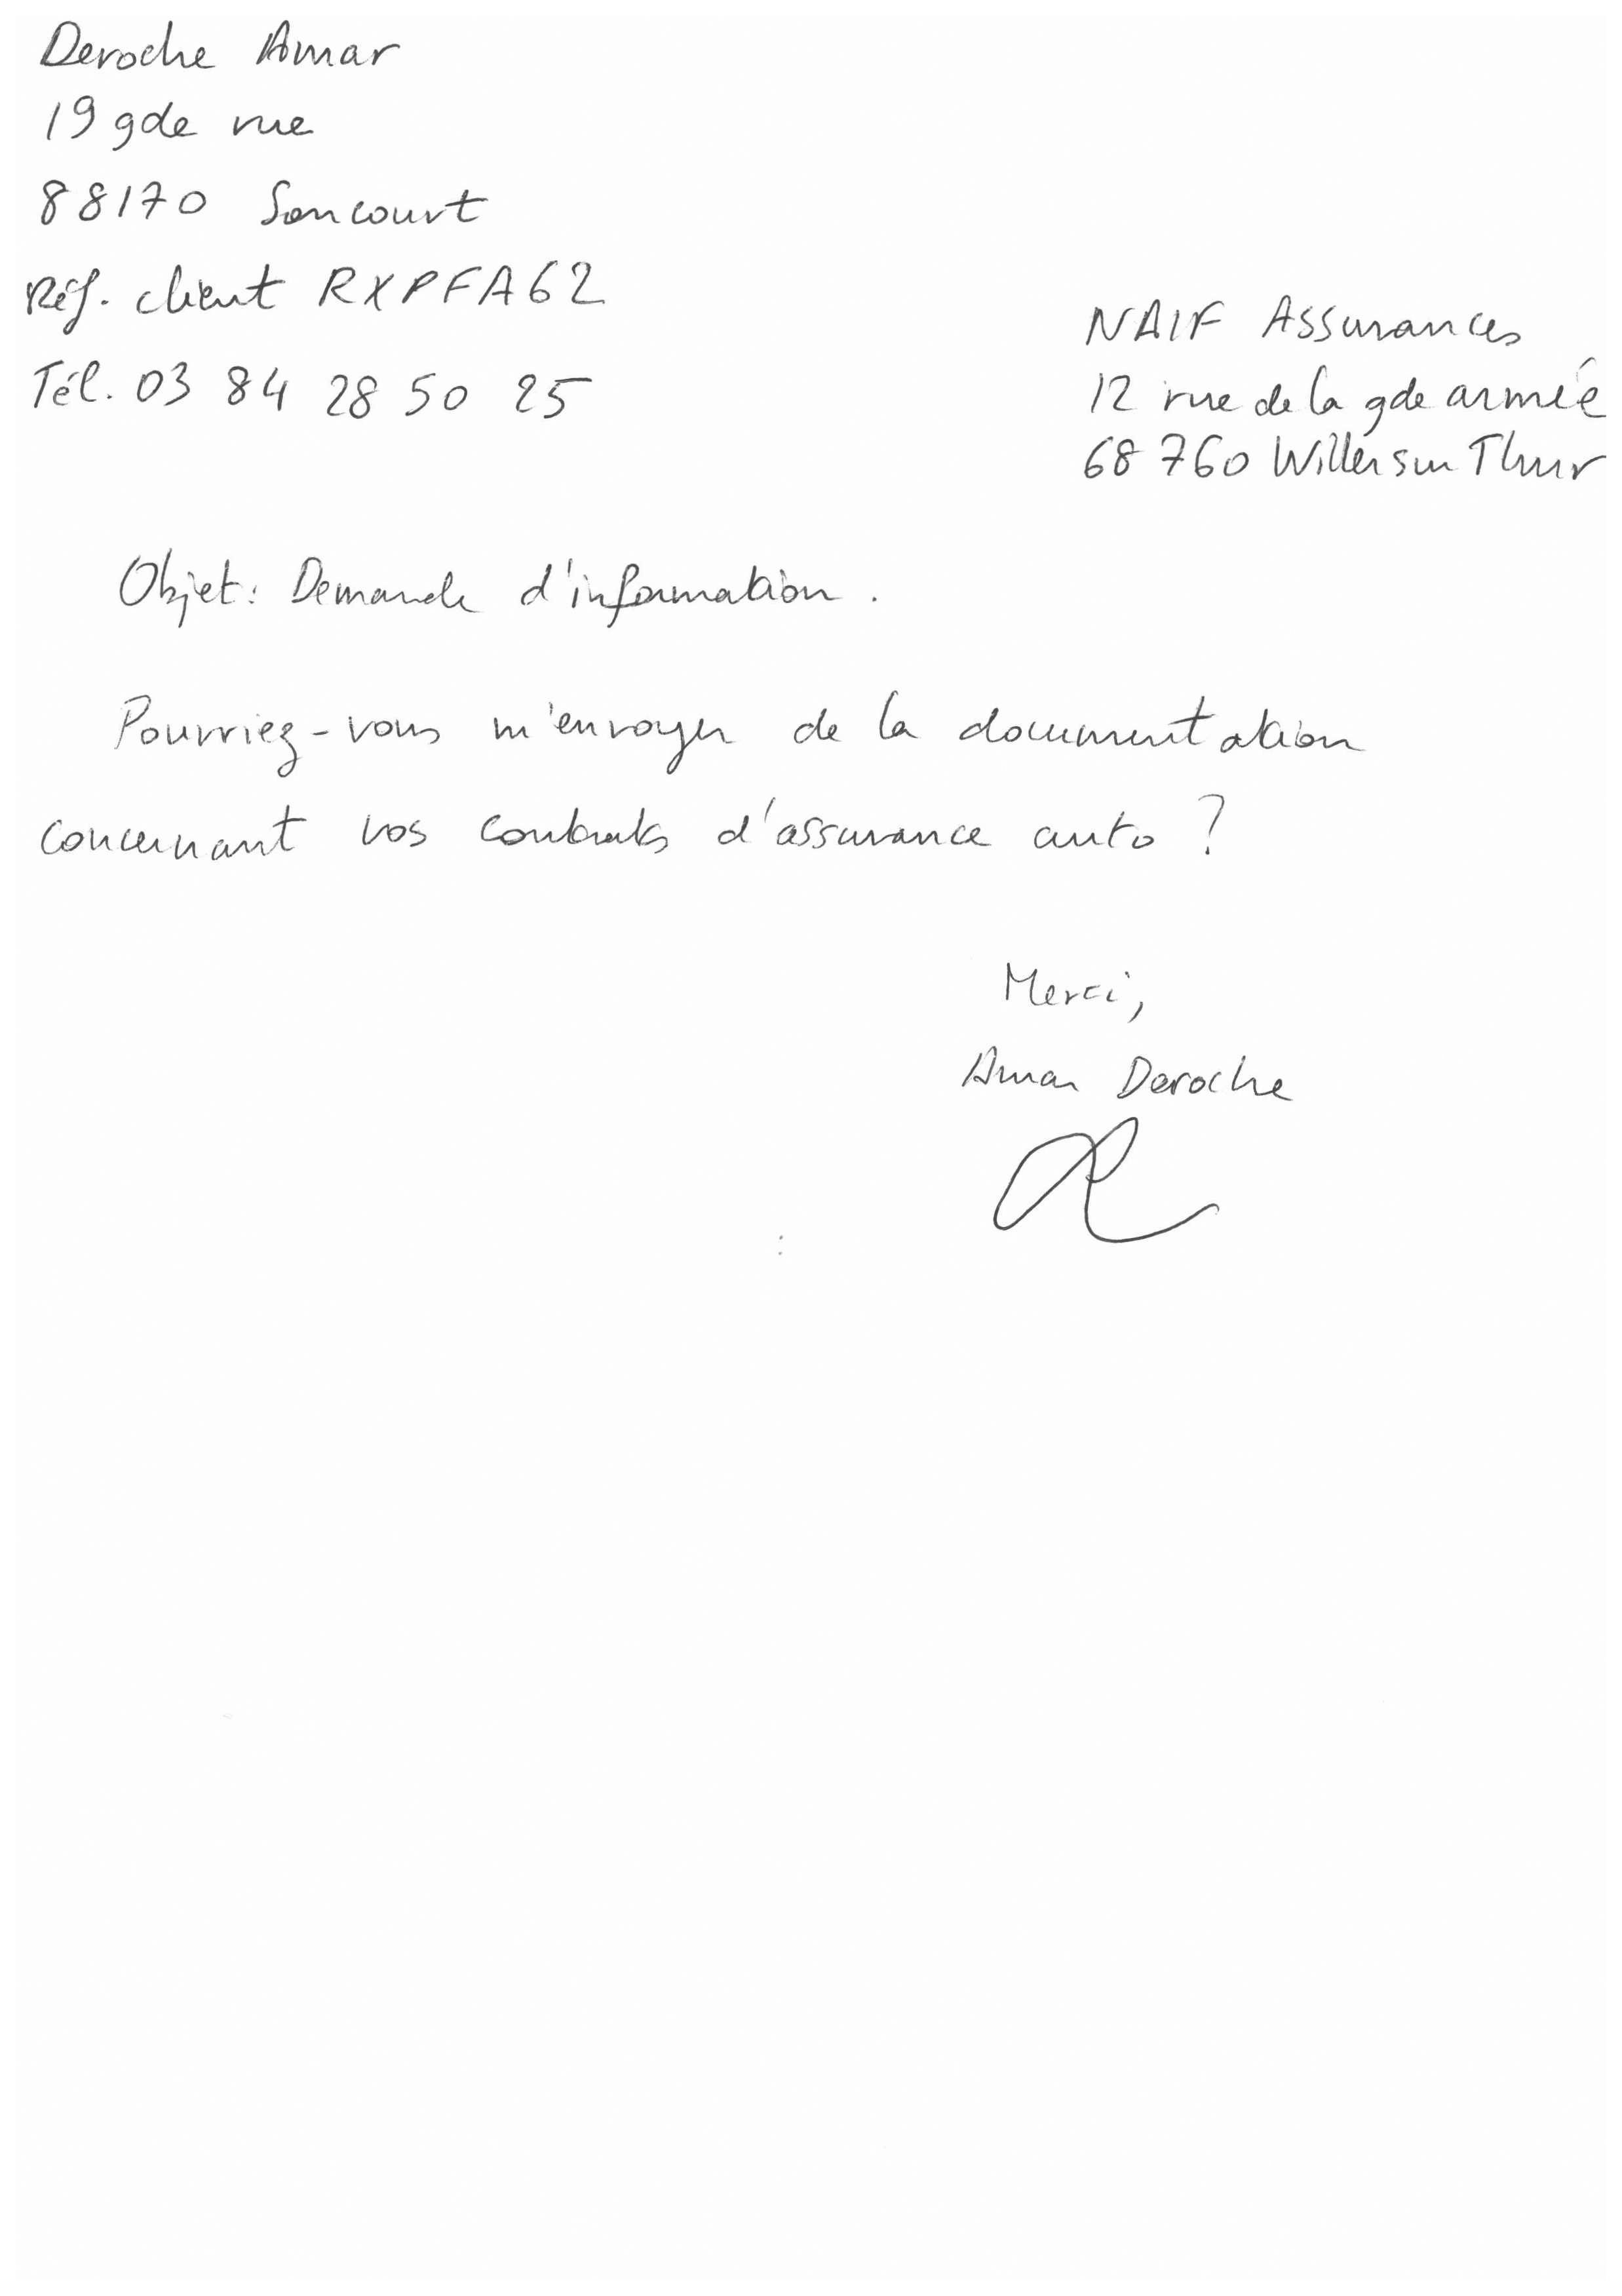 Deroche Amar
19 gde rue
88170 Soncourt
Réf. client RXPFA62
Tél. 03 84 28 50 25
NAIF Assurances
12 rue de la gde armée
68 760 Willer sur Thur
Objet : Demande d'information.
Pourriez-vous m'envoyer de la documentation
concernant vos contrats d'assurance auto ?
Merci,
Amar Deroche